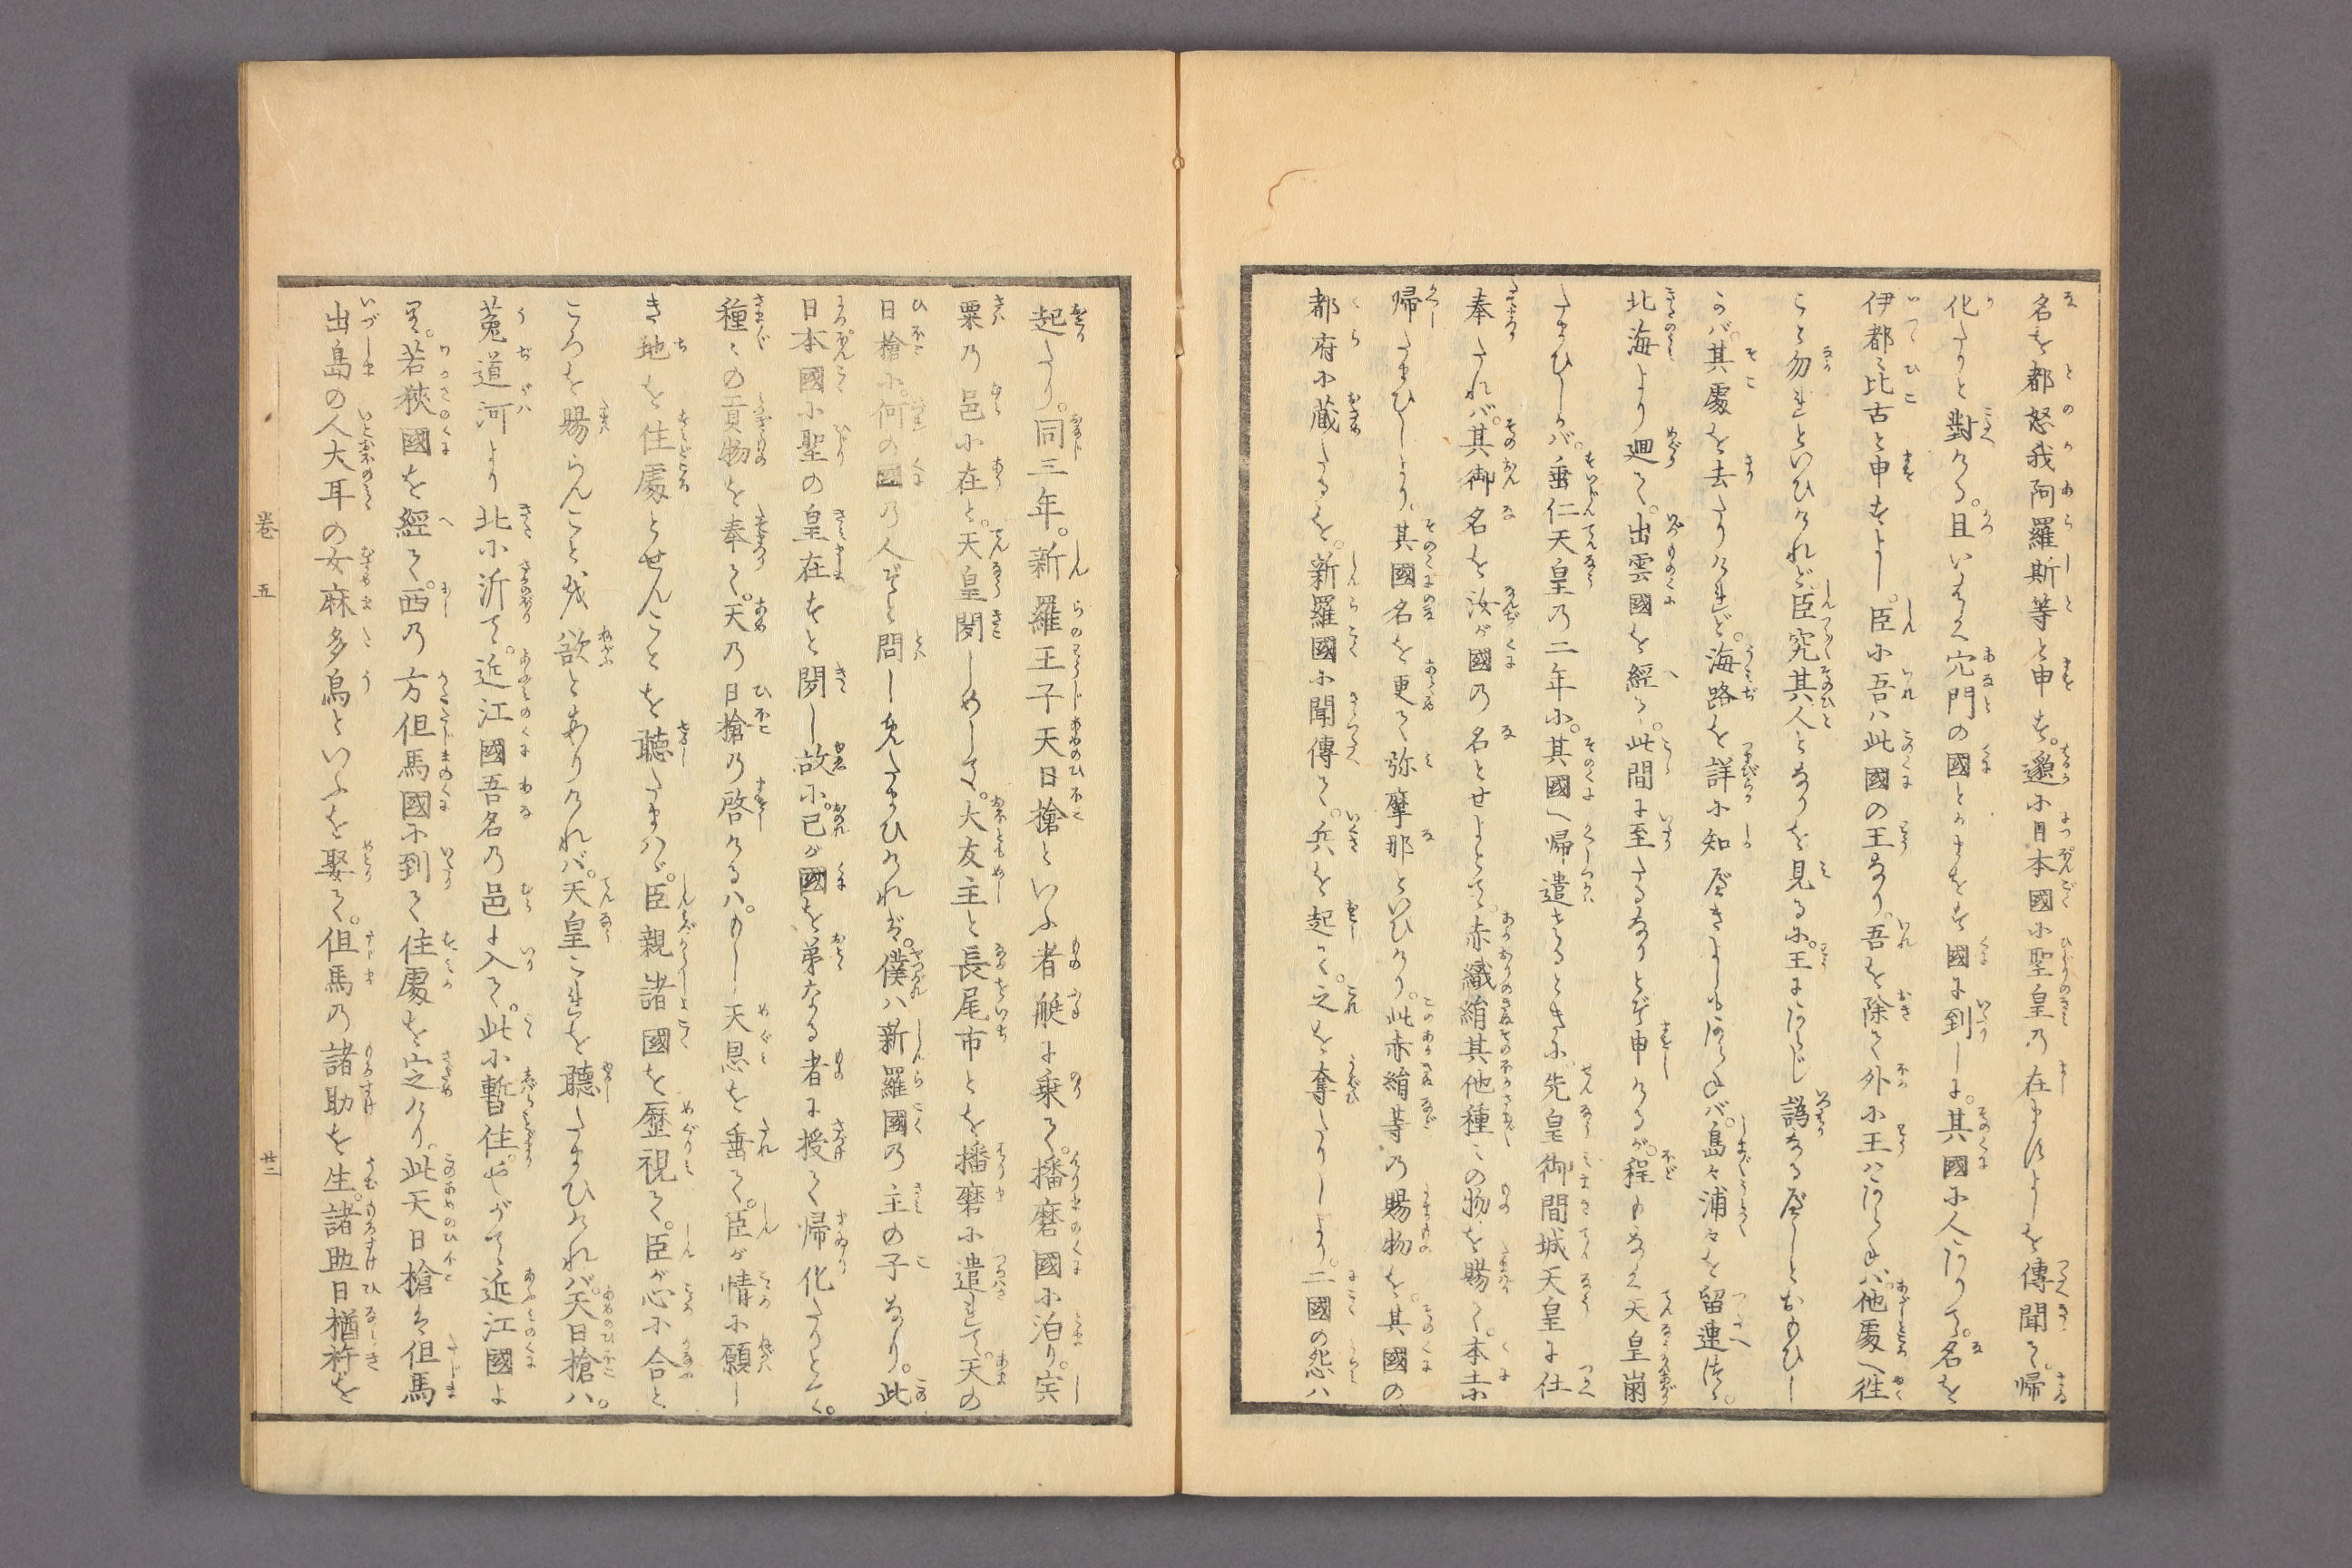 名を都怒我阿羅斯等と申す。遙に日本國に聖皇の在ますよしを傳聞て。帰
化たりと對ける。且いはく穴門の國とかまをす國に到しに。其國に人ありて。名を
伊都々比古と申すよし。臣に吾は此國の王なり。吾を除て外に王はあらねば。他處へ往
こと勿れといひけれど。臣究其人となりを見るに。王にあらじ。譌なる壓しとおもひし
かば。其處を去たりけれど。海路を詳に知壓きよしもあらねば。島々浦々を留連つゝ。
北海より廻て。出雲國を經て。此間に至たるなりとぞ申ける。が。程もなく天皇崩
たまひしかば。垂仁天皇の二年に。其國へ帰遣さるときに。先皇御間城天皇に仕
奉たれば。其御名を汝が國の名とせよとて。赤織絹其他種々の物を賜て。本土に
帰たまひしより。其國名を更て弥摩那といひけり。此赤絹等の賜物を。其國の
都府に蔵したるを。新羅國に聞傳て。兵を起して。之を奪たりしより。二國の怨は
起たり。同三年。新羅王子天日槍といふ者艇に乗て。播磨國に泊り。宍
粟の邑に在と。天皇聞しめして。大友主と長尾市とを播磨に遣されて。天の
日槍に。何の國の人ぞと問しめたまひければ。僕は新羅國の主の子なり。此
日本國に聖の皇在すと聞し故に。己が國を弟なる者に授て帰化たりといふ。
種々の貢物を奉て。天の日槍の啓けるは。もし天恩を垂て。臣が情に願し
き地を住處とせんことを聽たまはゞ。臣親諸國を歴視て。臣が心に合と
ころを賜らんことを欲とありければ。天皇これを聽したまひければ。天日槍は。
菟道河より北に泝て。近江國吾名の邑に入て。此に暫住。やがて近江國よ
り。若狹國を經て。西の方但馬國に到て住處を定けり。此天日槍は但馬
出島の人大耳の女麻多烏といふを娶て。但馬の諸助を生。諸助日楢杵を
卷五　廿二